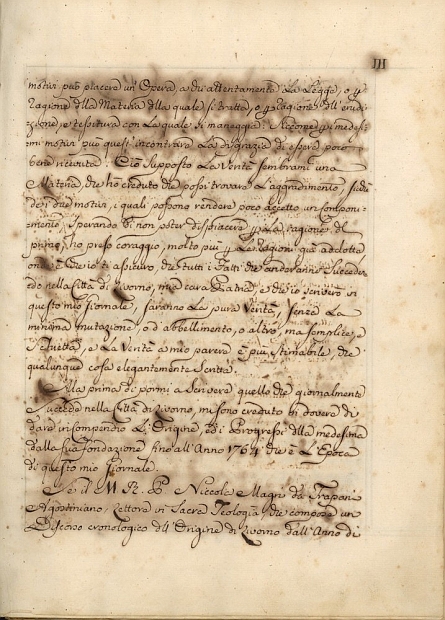 III
motivi può piacere un'Opera, a chi attentamente La Legge, o p
ragione della Materia della quale si tratta, o p ragione dell'erudi-
zione, e tessitura con La quale si maneggia: Siccome p i medesi-
mi motivi può quest'incontrare La disgrazia di essere poco
bene ricevuta. Ciò supposto La Verità sembrami una
Materia, che hò creduto che possi trovare L'aggradimento,
dei due motivi, i quali possono rendere poco accetto un componi-
mento, Sperando di non poter dispiacere p La ragione del
primo, hò preso coraggio, molto più p Le ragioni quà addotte
one. E che io ti assicuro, che tutti i Fatti che anderanno Succeden-
do nella Città di Livorno, mia cara Patria, e che io scriverò in
questo mio Giornale, saranno La pura Verità, senza La
minima mutazione, o d'abbellimento, o altro, ma semplice, e
Schietta, e La Verità a mio parere è più stimabile, che
qualunque cosa elegantemente Scritta.
Alla prima di pormi a Scrivere quello che giornalmente
Succede nella Città di Livorno, mi sono creduto in dovere di
dare in compendio L'Origine, ed i Progressi della medesima
dalla sua fondazione fino all'Anno 1764 che è L'Epoca
di questo mio Giornale.
Se il M. R. P. Niccola Magri da Trapani
Agostiniano, Lettore in Sacra Teologia, che compose un
Discorso cronologico dell'Origine di Livorno dall'Anno di